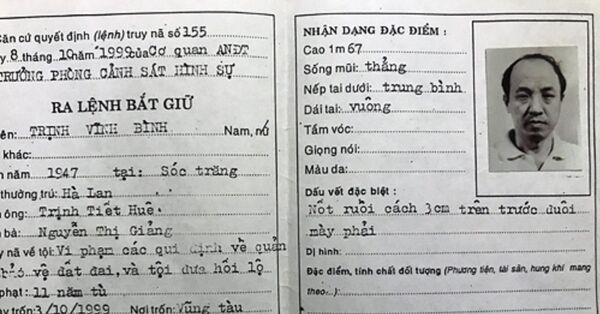 Căn cứ quyết định (lệnh) truy nã số 155
y 8 tháng 10 năm 1999 của Cơ quan ANĐT
TRƯỞNG PHÒNG CẢNH SÁT HÌNH SỰ
RA LỆNH BẮT GIỮ
ên: TRỊNH VĨNH BÌNH Nam, nữ
khác:
năm 1947 tại: Sóc trăng
thường trú: Hà Lan
ông: Trịnh Tiết Huê
bà: Nguyễn Thị Giảng
nã về tội: Vi phạm các qui định về quản
bảo vệ đất đai, và tội đưa hối lộ
phạt: 11 năm tù
trốn: 3/10/1999 Nơi trốn: Vũng tàu
NHẬN DẠNG ĐẶC ĐIỂM :
Cao 1m 67
Sống mũi: thẳng
Nếp tai dưới: trung bình
Dái tai: vuông
Tầm vóc:
Giọng nói:
Màu da:
Dấu vết đặc biệt :
Nốt ruồi cách 3cm trên trước đuôi
mày phải
Dị hình:
Đặc điểm, tính chất đối tượng (Phương tiện, tài sản, hung khí mang
theo...)